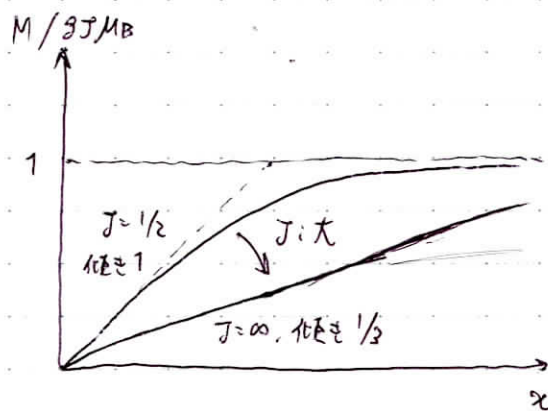 M/gJμB
1
J=1/2
傾き1
J:大
J=∞, 傾き1/3
x